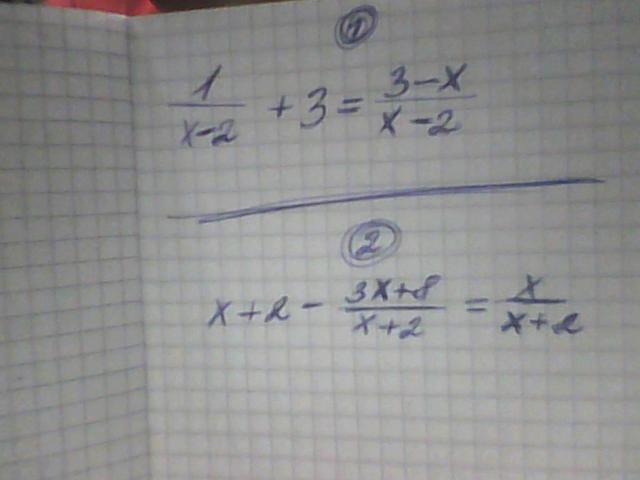 1
1/(x-2) + 3 = (3-x)/(x-2)
2
x+2 - (3x+8)/(x+2) = x/(x+2)